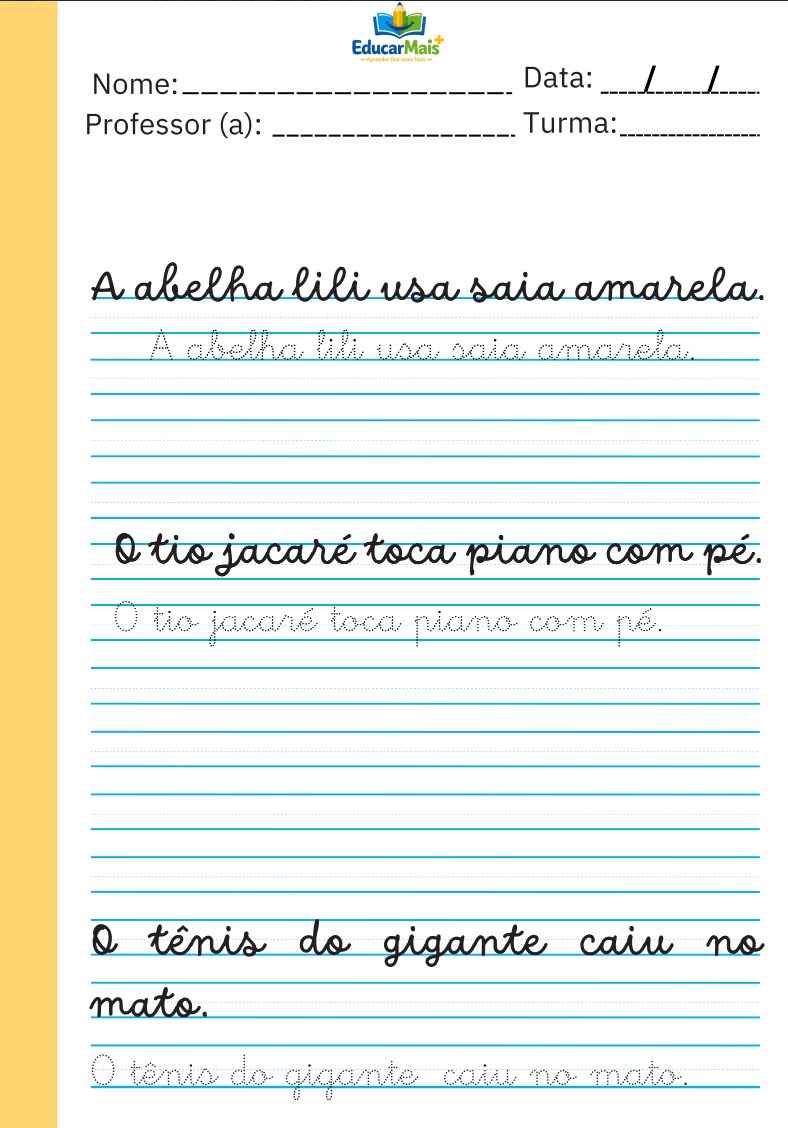 EducarMais+
Aprender fica mais fácil
Nome: Data: / /
Professor (a): Turma:
A abelha lili usa saia amarela.
A abelha lili usa saia amarela.
O tio jacaré toca piano com pé.
O tio jacaré toca piano com pé.
O tênis do gigante caiu no
mato.
O tênis do gigante caiu no mato.